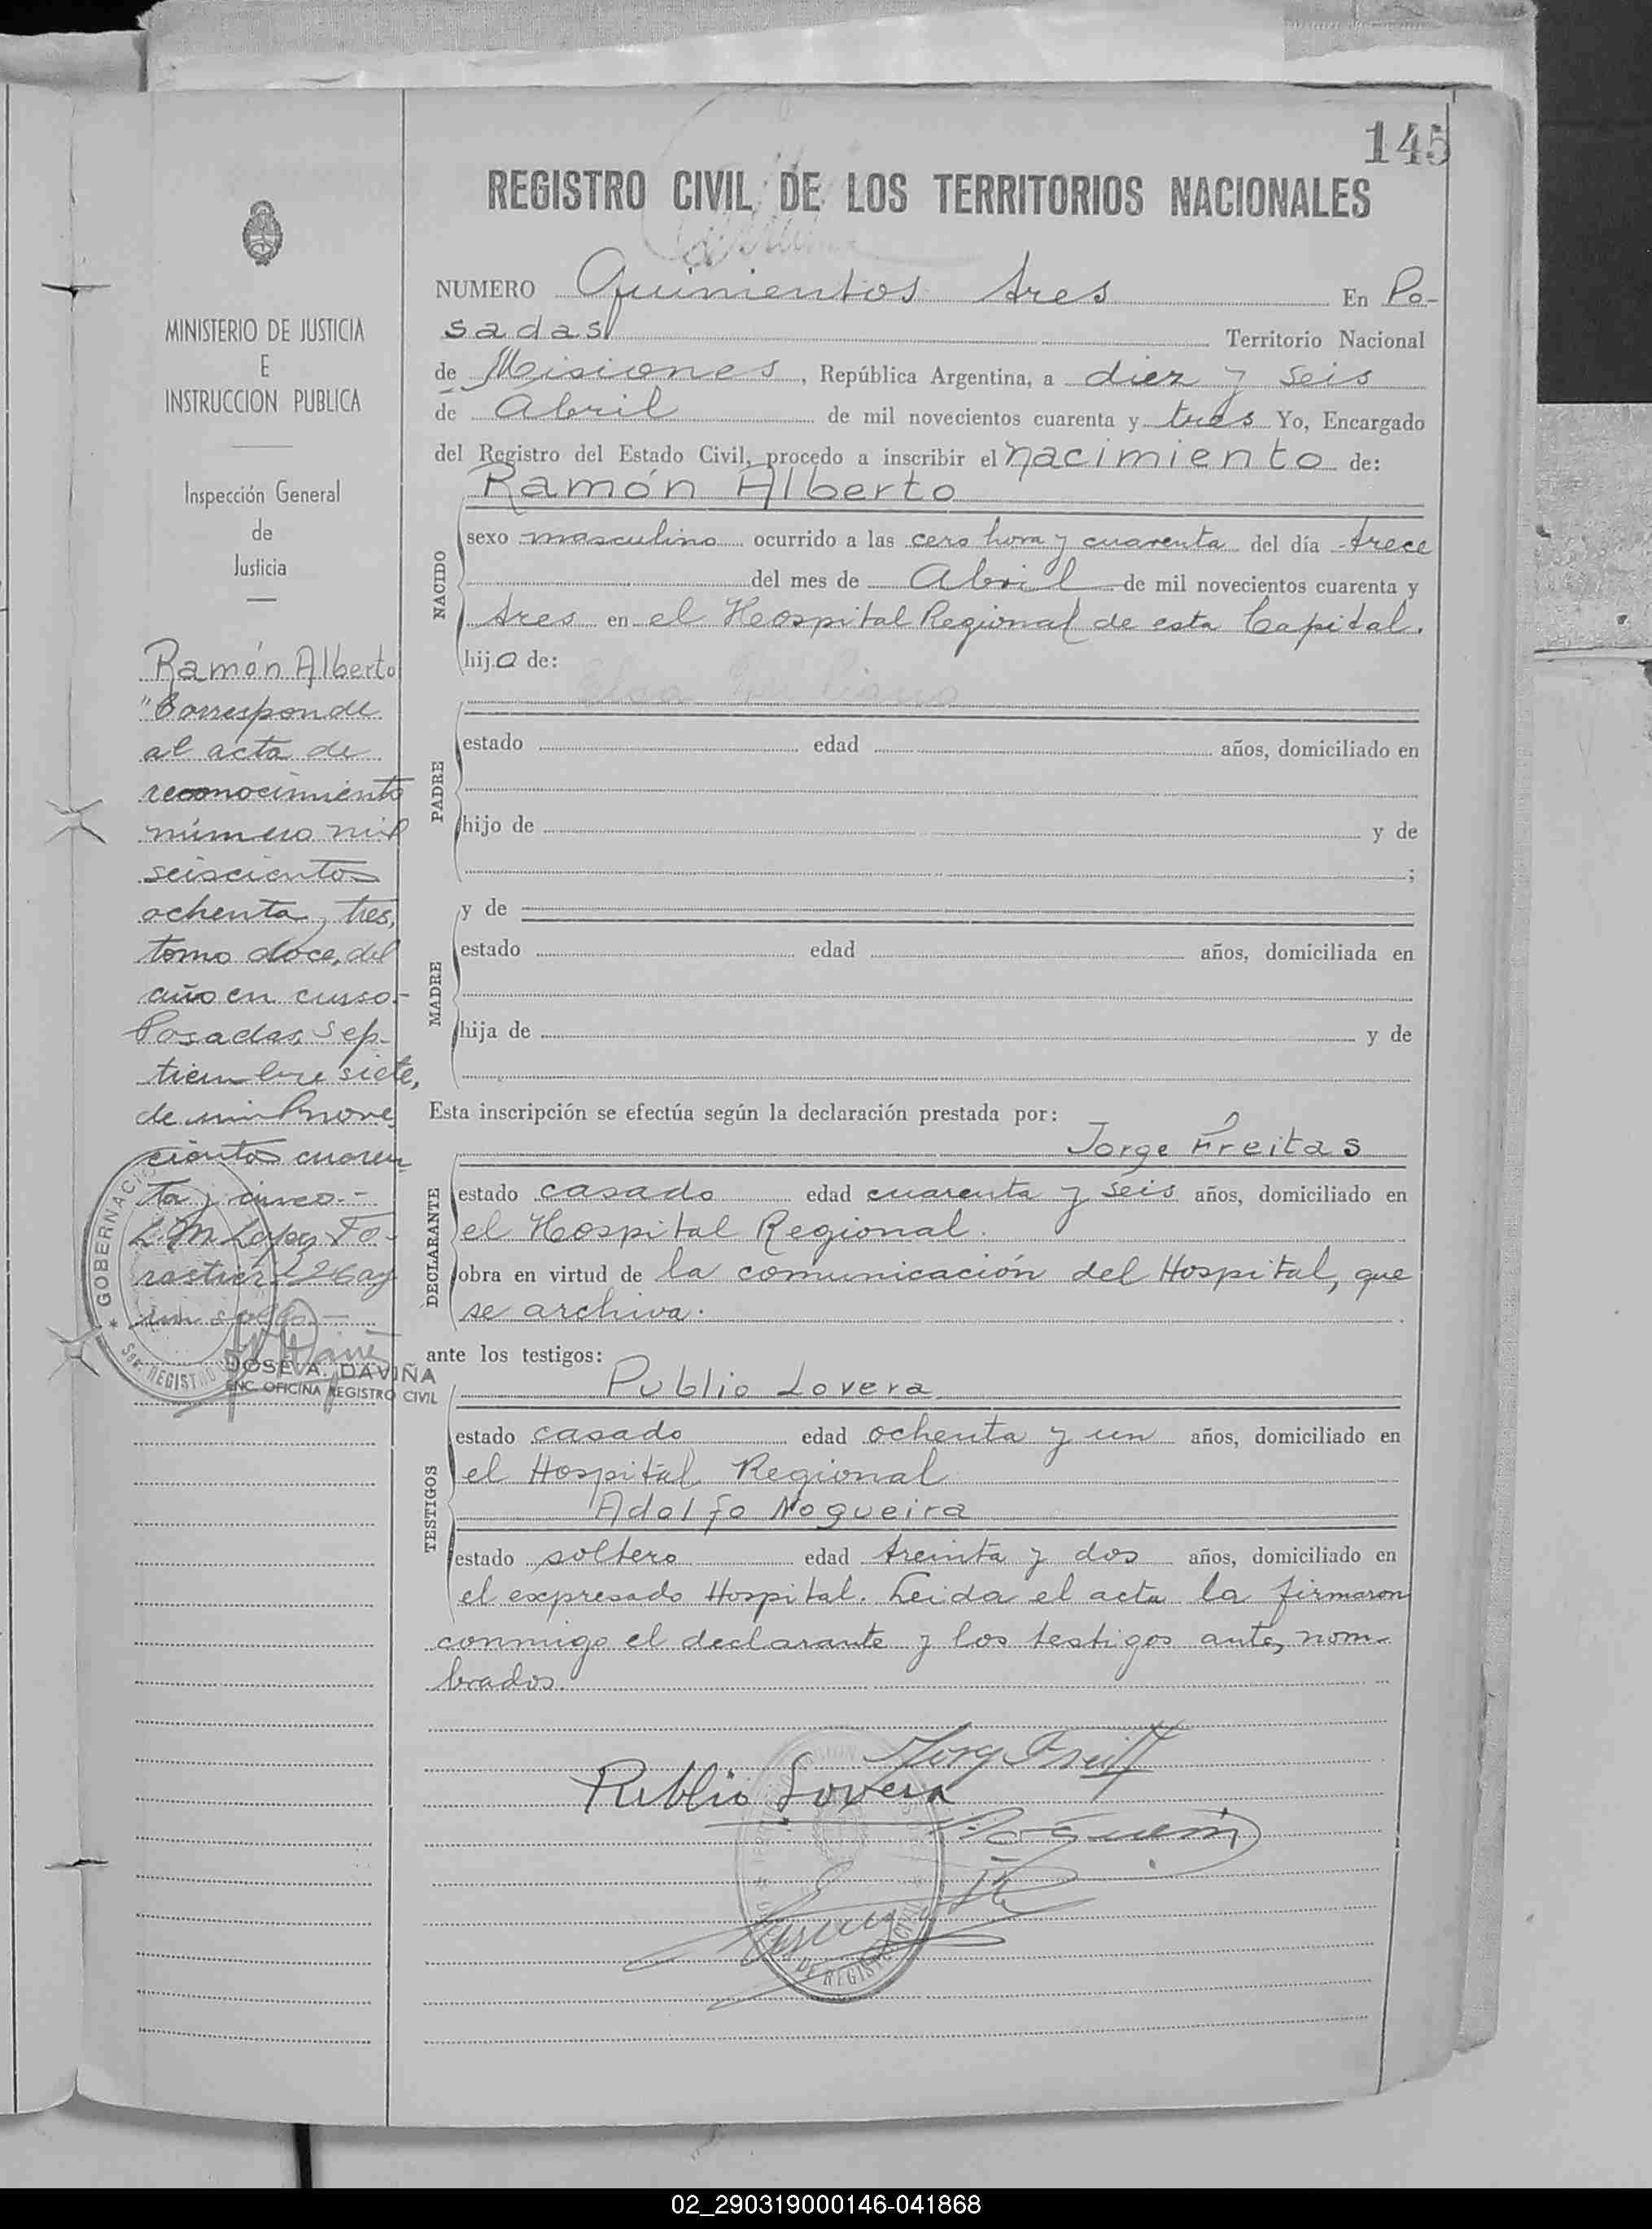 145
REGISTRO CIVIL DE LOS TERRITORIOS NACIONALES
MINISTERIO DE JUSTICIA
E
INSTRUCCION PUBLICA
Inspección General
de
Justicia
Ramón Alberto
"Corresponde
al acta de
reconocimiento
número mil
seiscientos
ochenta y tres,
tomo doce, del
año en curso.-
Posadas, Sep-
tiembre siete,
de mil nove
cientos cuaren
ta y cinco.-
JOSE A. DAVIÑA
ENC. OFICINA REGISTRO CIVIL
NUMERO Quinientos tres En Po-
sadas Territorio Nacional
de Misiones, República Argentina, a diez y seis
de Abril de mil novecientos cuarenta y tres Yo, Encargado
del Registro del Estado Civil, procedo a inscribir el nacimiento de:
Ramón Alberto
NACIDO
sexo masculino ocurrido a las cero hora y cuarenta del día trece
del mes de Abril de mil novecientos cuarenta y
tres en el Hospital Regional de esta Capital.
hijo de:
PADRE
estado edad años, domiciliado en
hijo de y de
;
y de
MADRE
estado edad años, domiciliada en
hija de y de
Esta inscripción se efectúa según la declaración prestada por:
Jorge Freitas
DECLARANTE
estado casado edad cuarenta y seis años, domiciliado en
el Hospital Regional.
obra en virtud de la comunicación del Hospital, que
se archiva.
ante los testigos:
Publio Lovera
TESTIGOS
estado casado edad ochenta y un años, domiciliado en
el Hospital Regional
Adolfo Nogueira
estado soltero edad treinta y dos años, domiciliado en
el expresado Hospital. Leida el acta la firmaron
conmigo el declarante y los testigos antes nom-
brados.
Publio Lovera
02_290319000146-041868